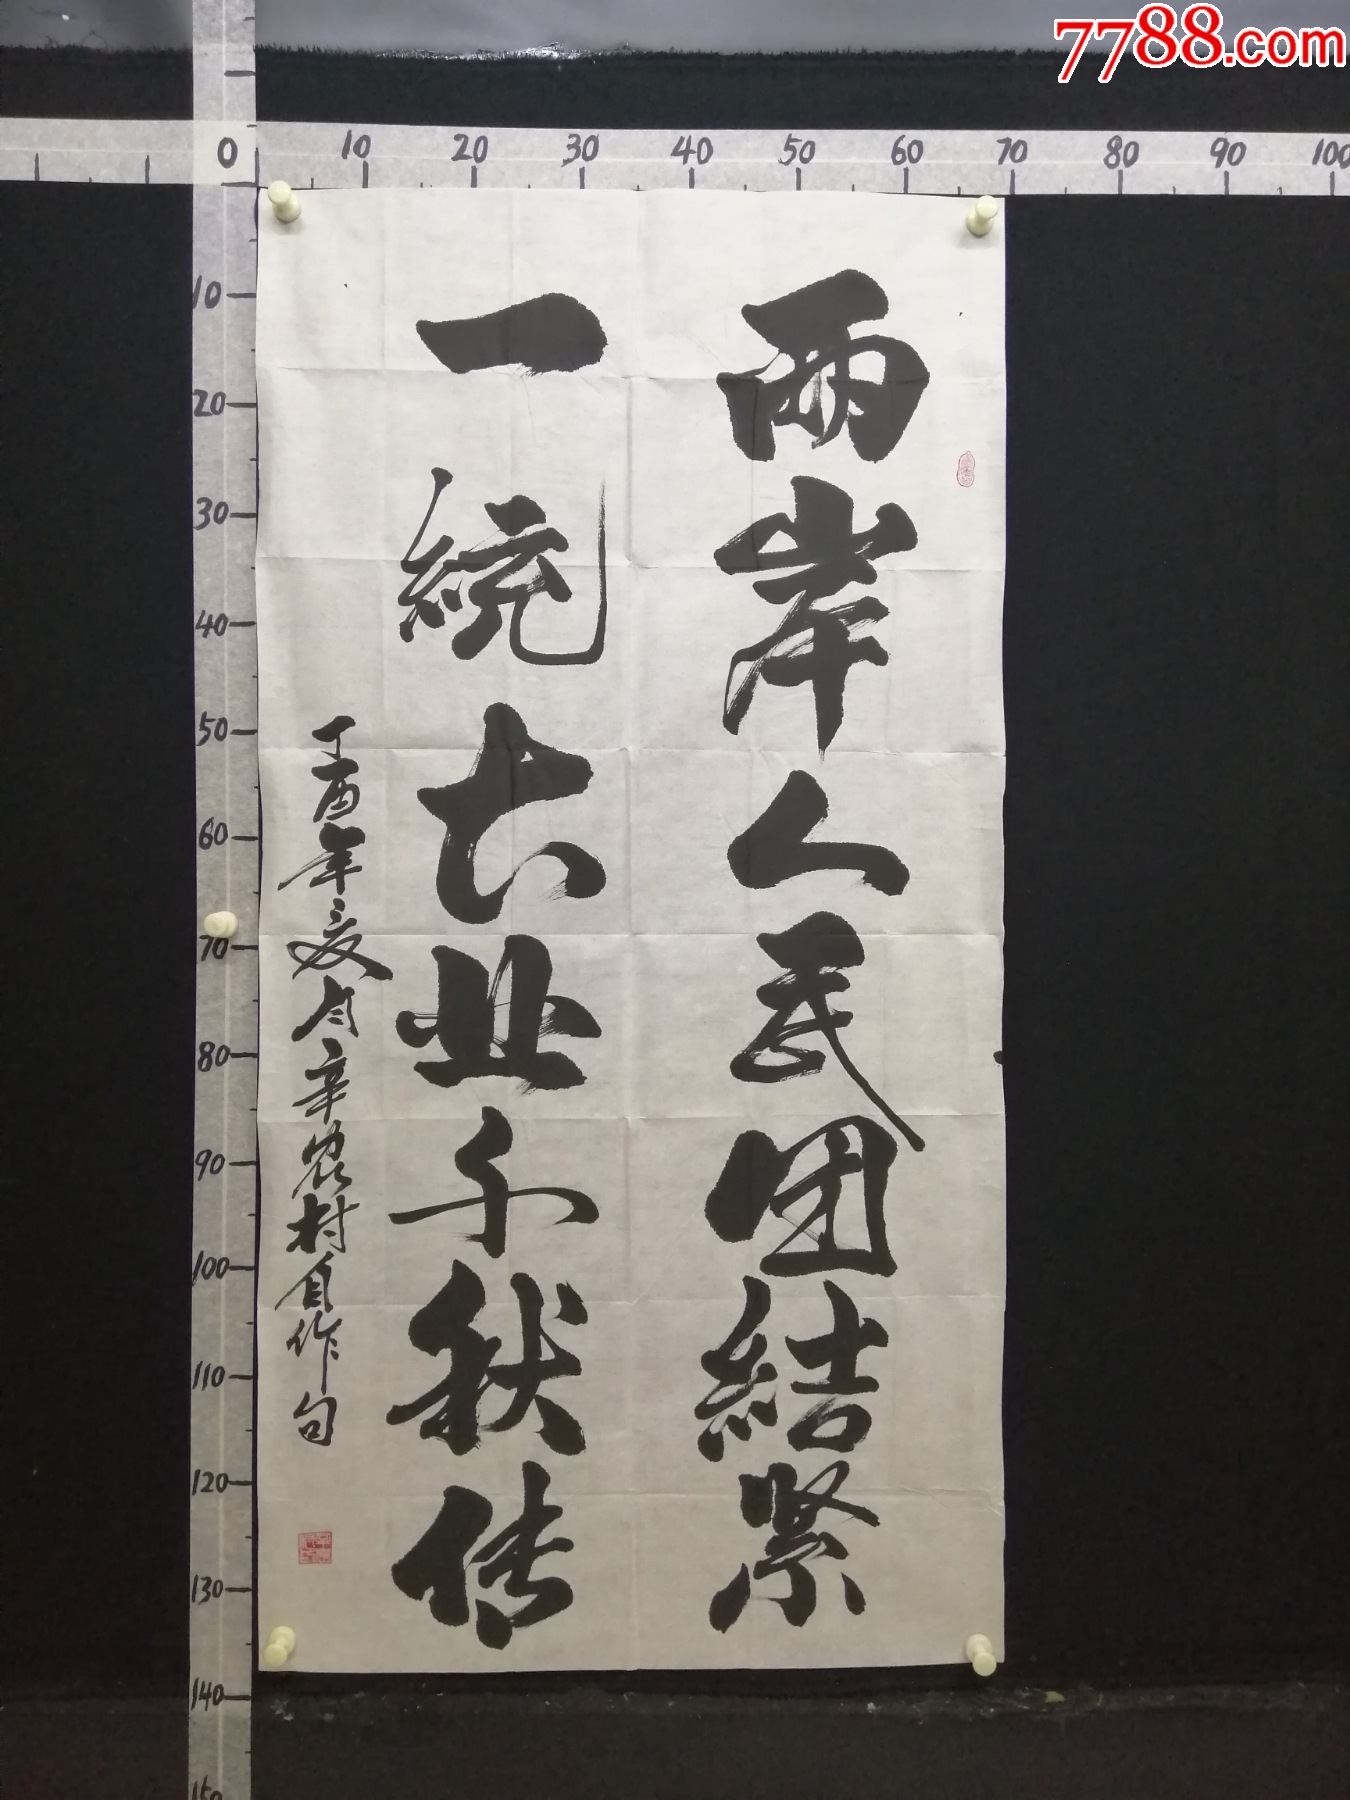 7788.com
0 10 20 30 40 50 60 70 80 90 100
10
20
30
40
50
60
70
80
90
100
110
120
130
140
150
兩岸人民团結紧
一統大业千秋传
丁酉年夏月辛农村自作句